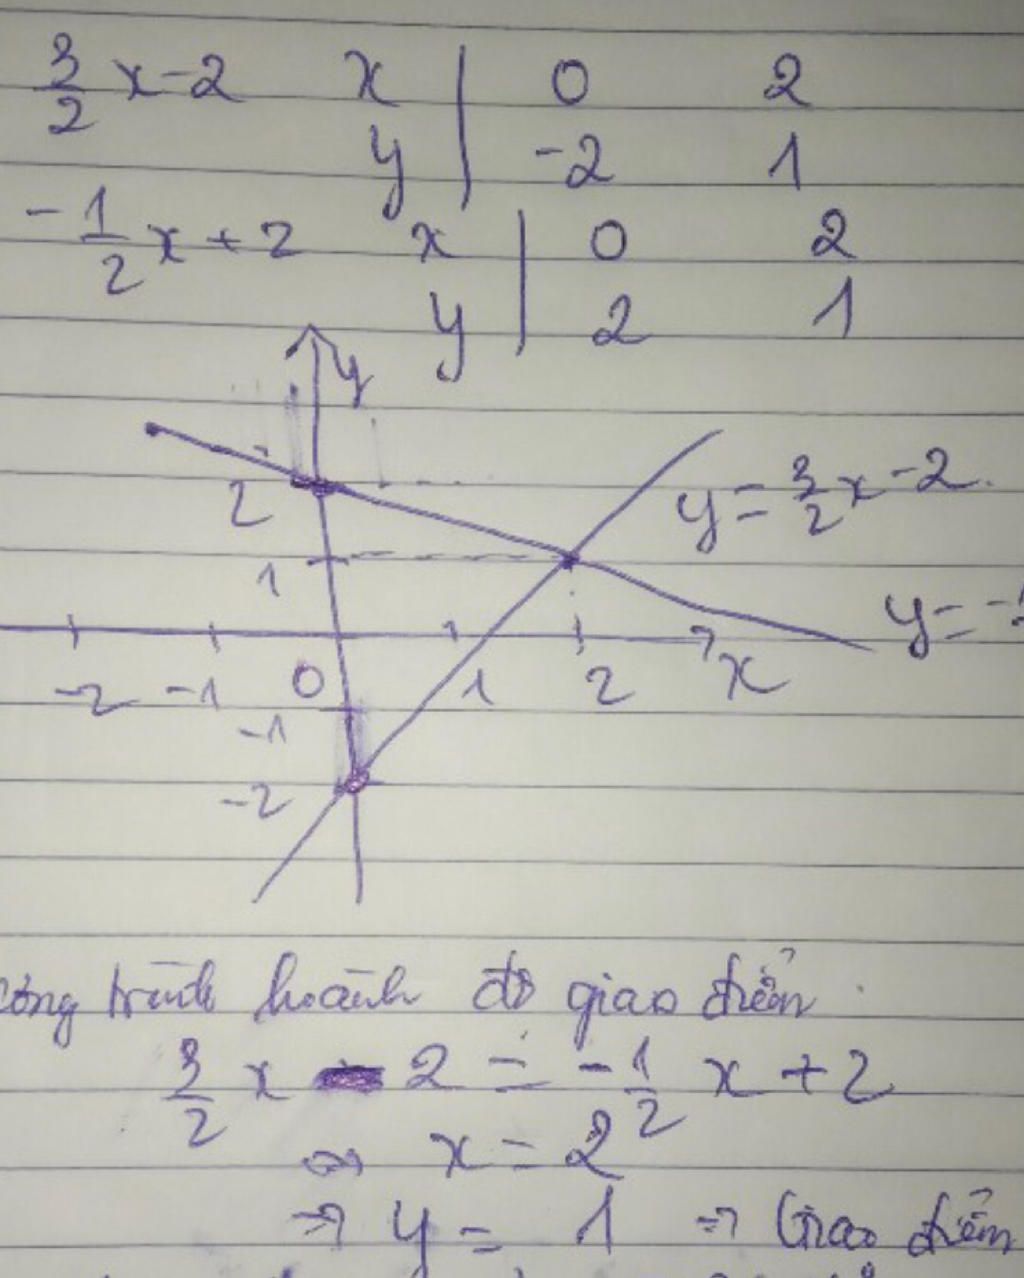 3/2 x-2 x | 0 2
y | -2 1
-1/2 x+2 x | 0 2
y | 2 1
y
y = 3/2 x-2
2
1
y = -1
-2 -1 0 1 2 x
-1
-2
trình hoành độ giao điểm
3/2 x - 2 = -1/2 x + 2
⇔ x = 2
⇒ y = 1 ⇒ Giao điểm